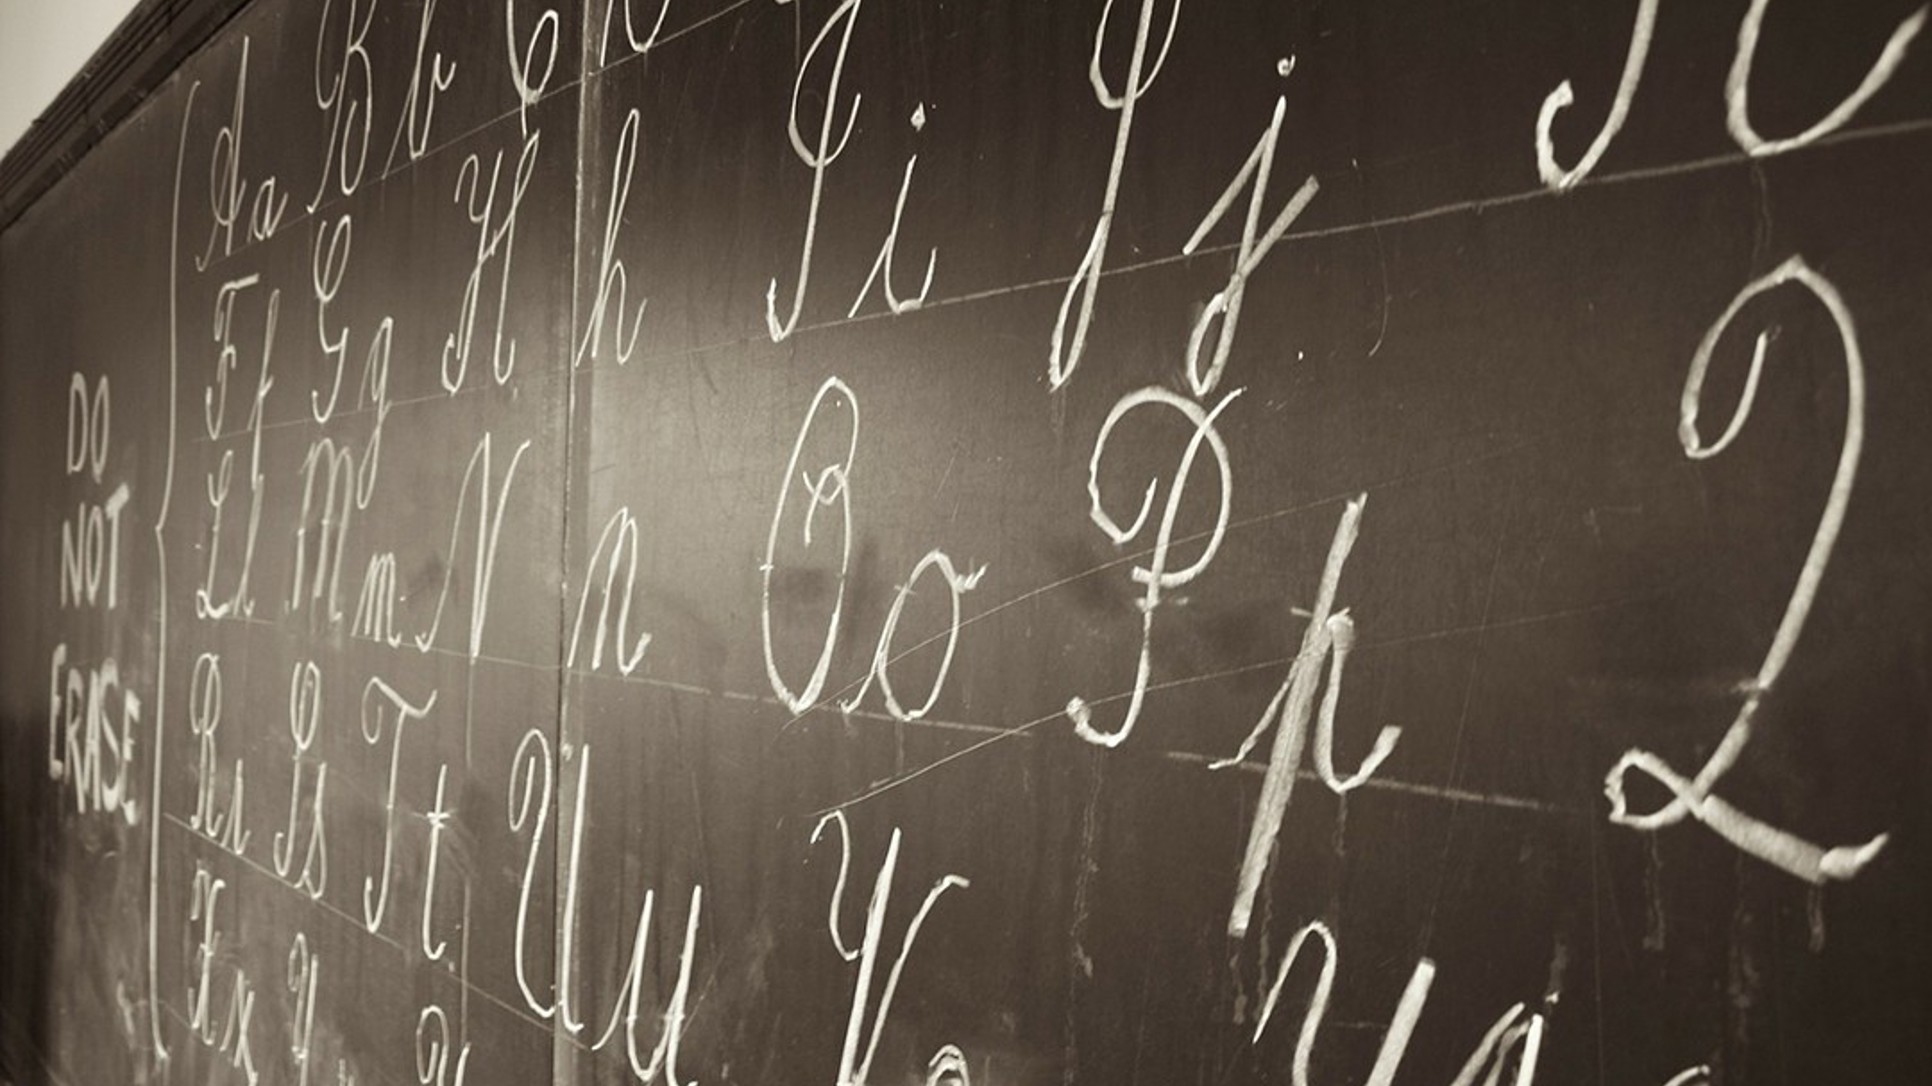 DO
NOT
ERASE
A a B b C
F f G g H h I i J j K
L l M m N n O o P p Q
R r S s T t U u V
X x Y